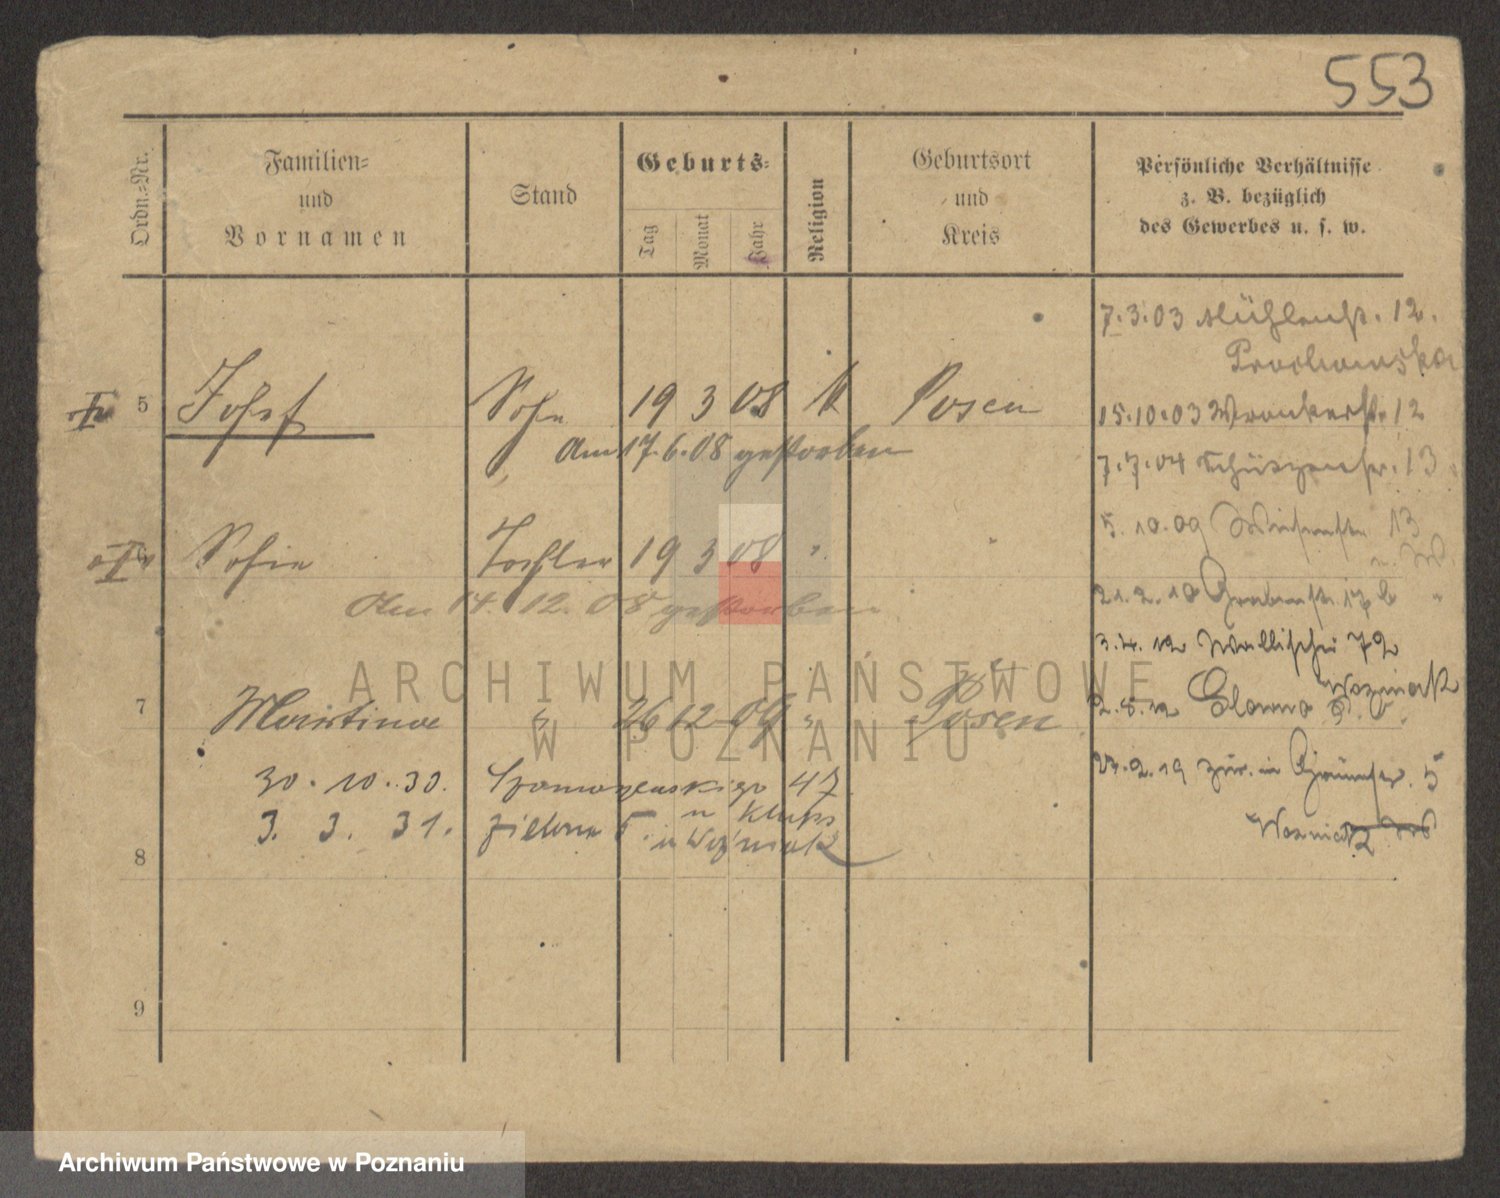 553
Ordn.-Nr.
Familien-
und
Vornamen
Stand
Geburts-
Tag
Monat
Jahr
Religion
Geburtsort
und
Kreis
Persönliche Verhältnisse
z. B. bezüglich
des Gewerbes u. s. w.
7.3.03 Mühlenstr. 12.
5 Josef Sohn 19 3 08 k Posen
15.10.03 Wronkerstr. 12
Am 17.6.08 gestorben
7.7.04 Schützenstr. 13
5.10.09 Wiesenstr. 13
6 Sofie Tochter 19 3 08 "
Am 14.12.08 gestorben
21.2.10 Grabenstr. 17 b
3.4.12 Wallischei 72
Wozniak
7 Martina " 26 12 09 " Posen
2.5.12
27.2.19 zur. in 5
30.10.30. 47
3. 3. 31. Zielona 5.
u Woźniak
Wozniak
8
9
ARCHIWUM PAŃSTWOWE
W POZNANIU
Archiwum Państwowe w Poznaniu